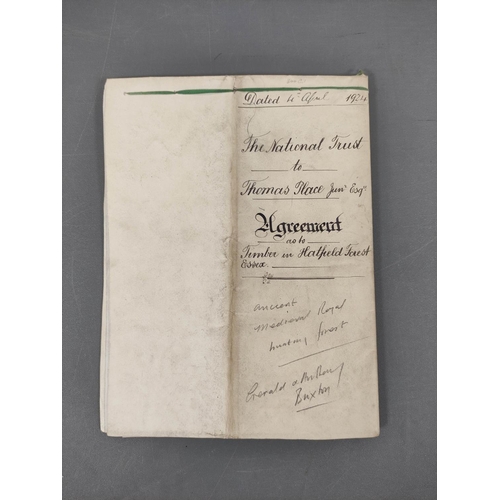 Dated 10 April 1924
The National Trust
to
Thomas Place Junr Esqr
Agreement
as to
Timber in Hatfield Forest
Essex
ancient
Medieval Royal
hunting forest
Gerald & Anthony
Buxton